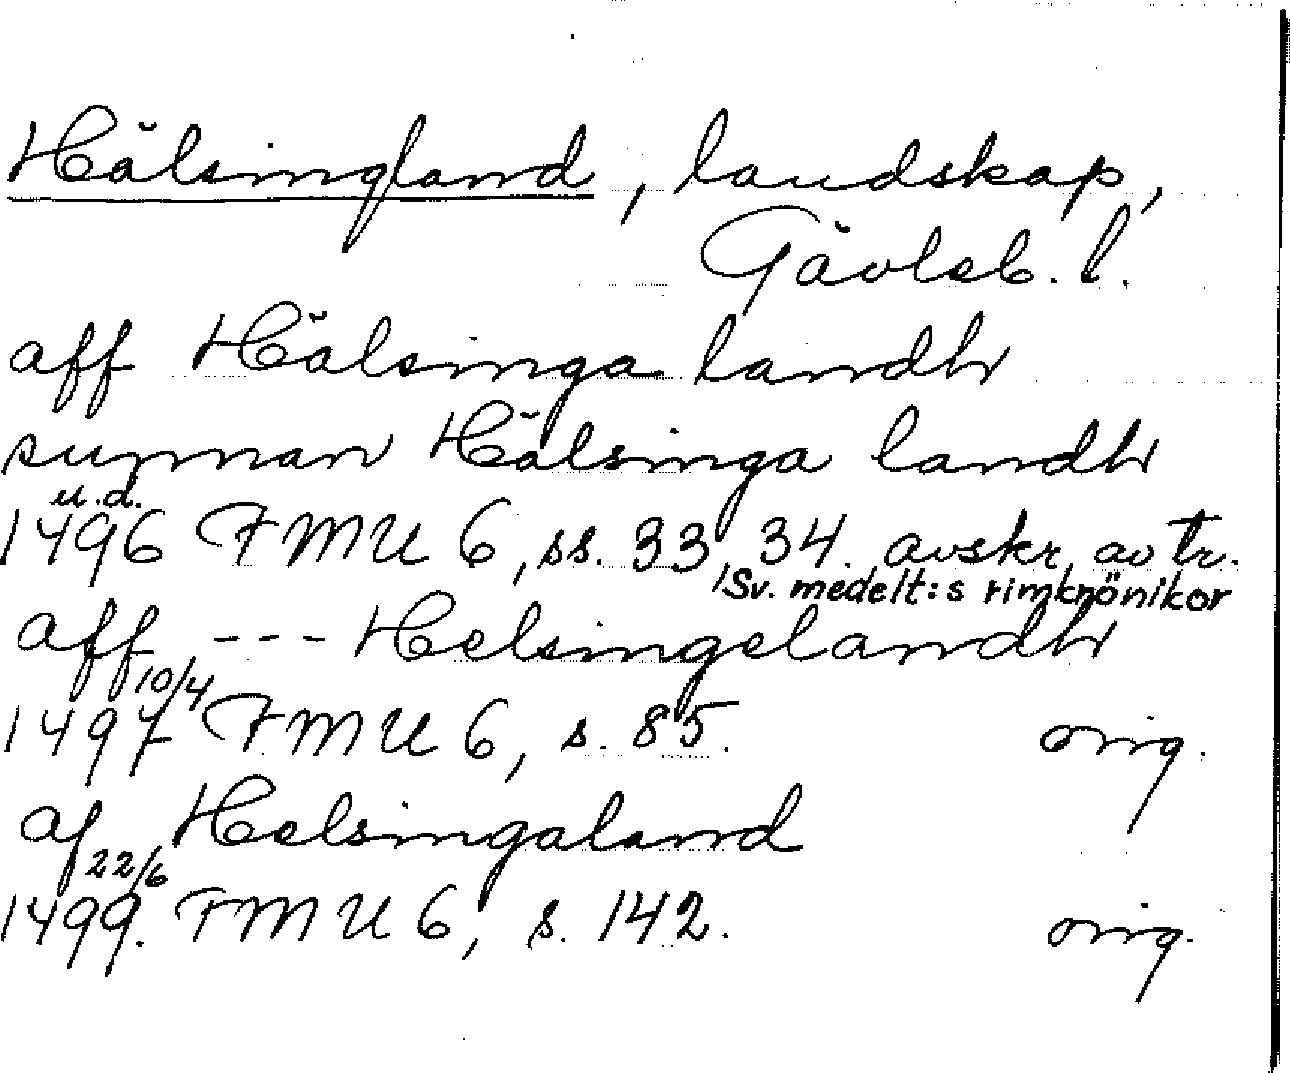 Hälsingland, landskap,
Gävleb. l.
aff Hälsinga landh
sunnan Hälsinga landh
u.d.
1496 FMU 6, ss. 33, 34. avskr. av tr.
/Sv. medelt:s rimkrönikor
aff --- Helsingelandh
10/4
1497 FMU 6, s. 85. orig.
af Helsingaland
22/6
1499. FMU 6, s. 142. orig.